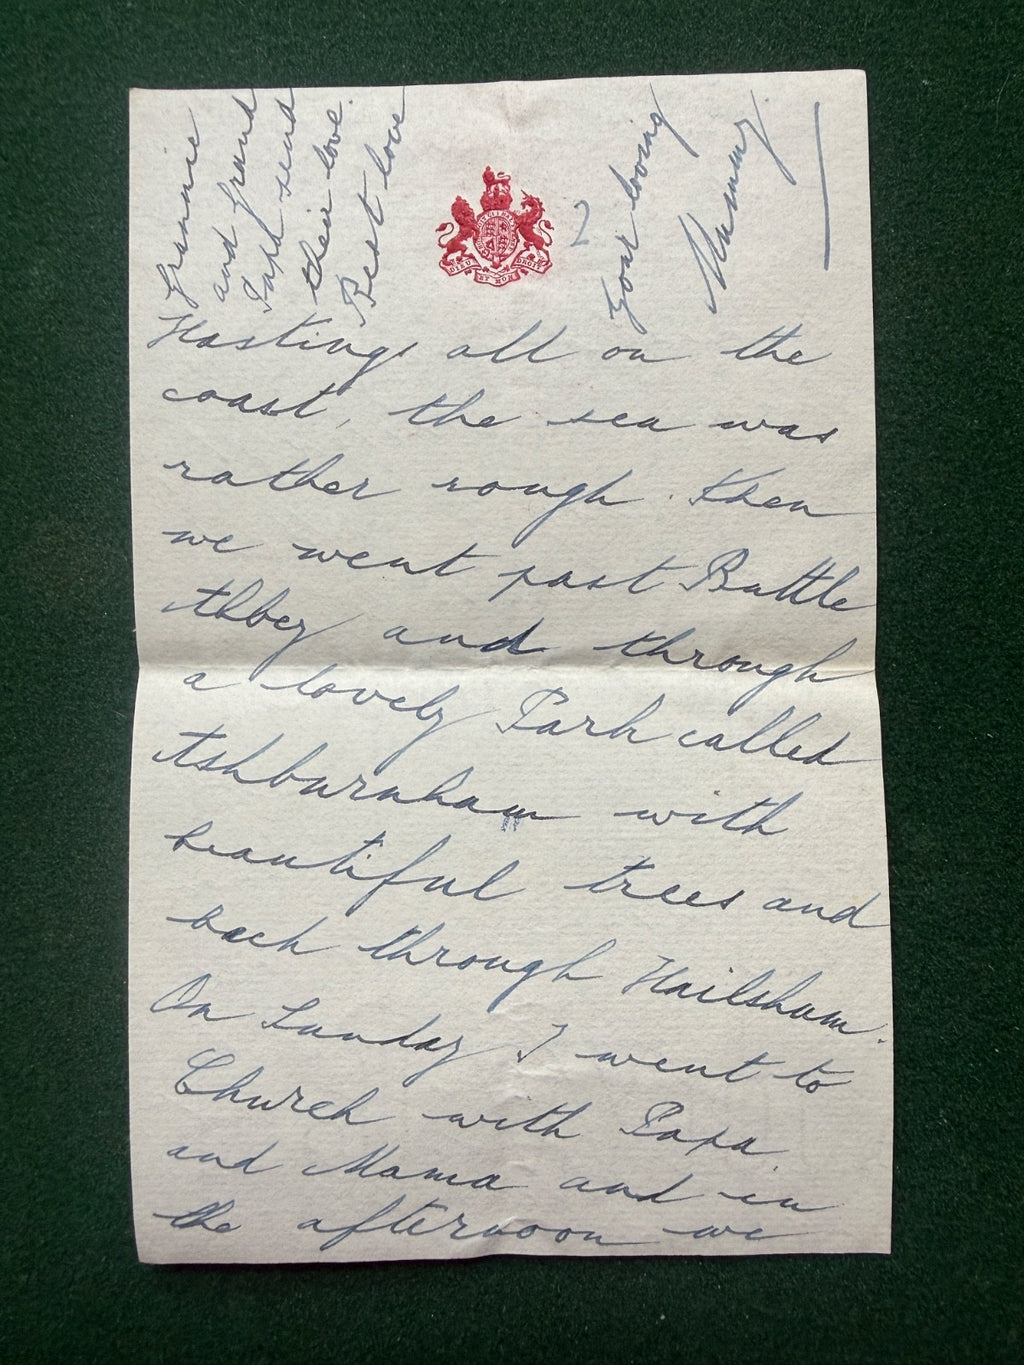 2
Hastings all on the
coast, the sea was
rather rough. Then
we went past Battle
Abbey and through
a lovely Park called
Ashburnham with
beautiful trees and
back through Hailsham.
On Sunday I went to
Church with Papa
and Mama and in
the afternoon we
Grannie
and Grand
Papa send
their love.
Best love
Your loving
Mummy.
DIEU ET MON DROIT